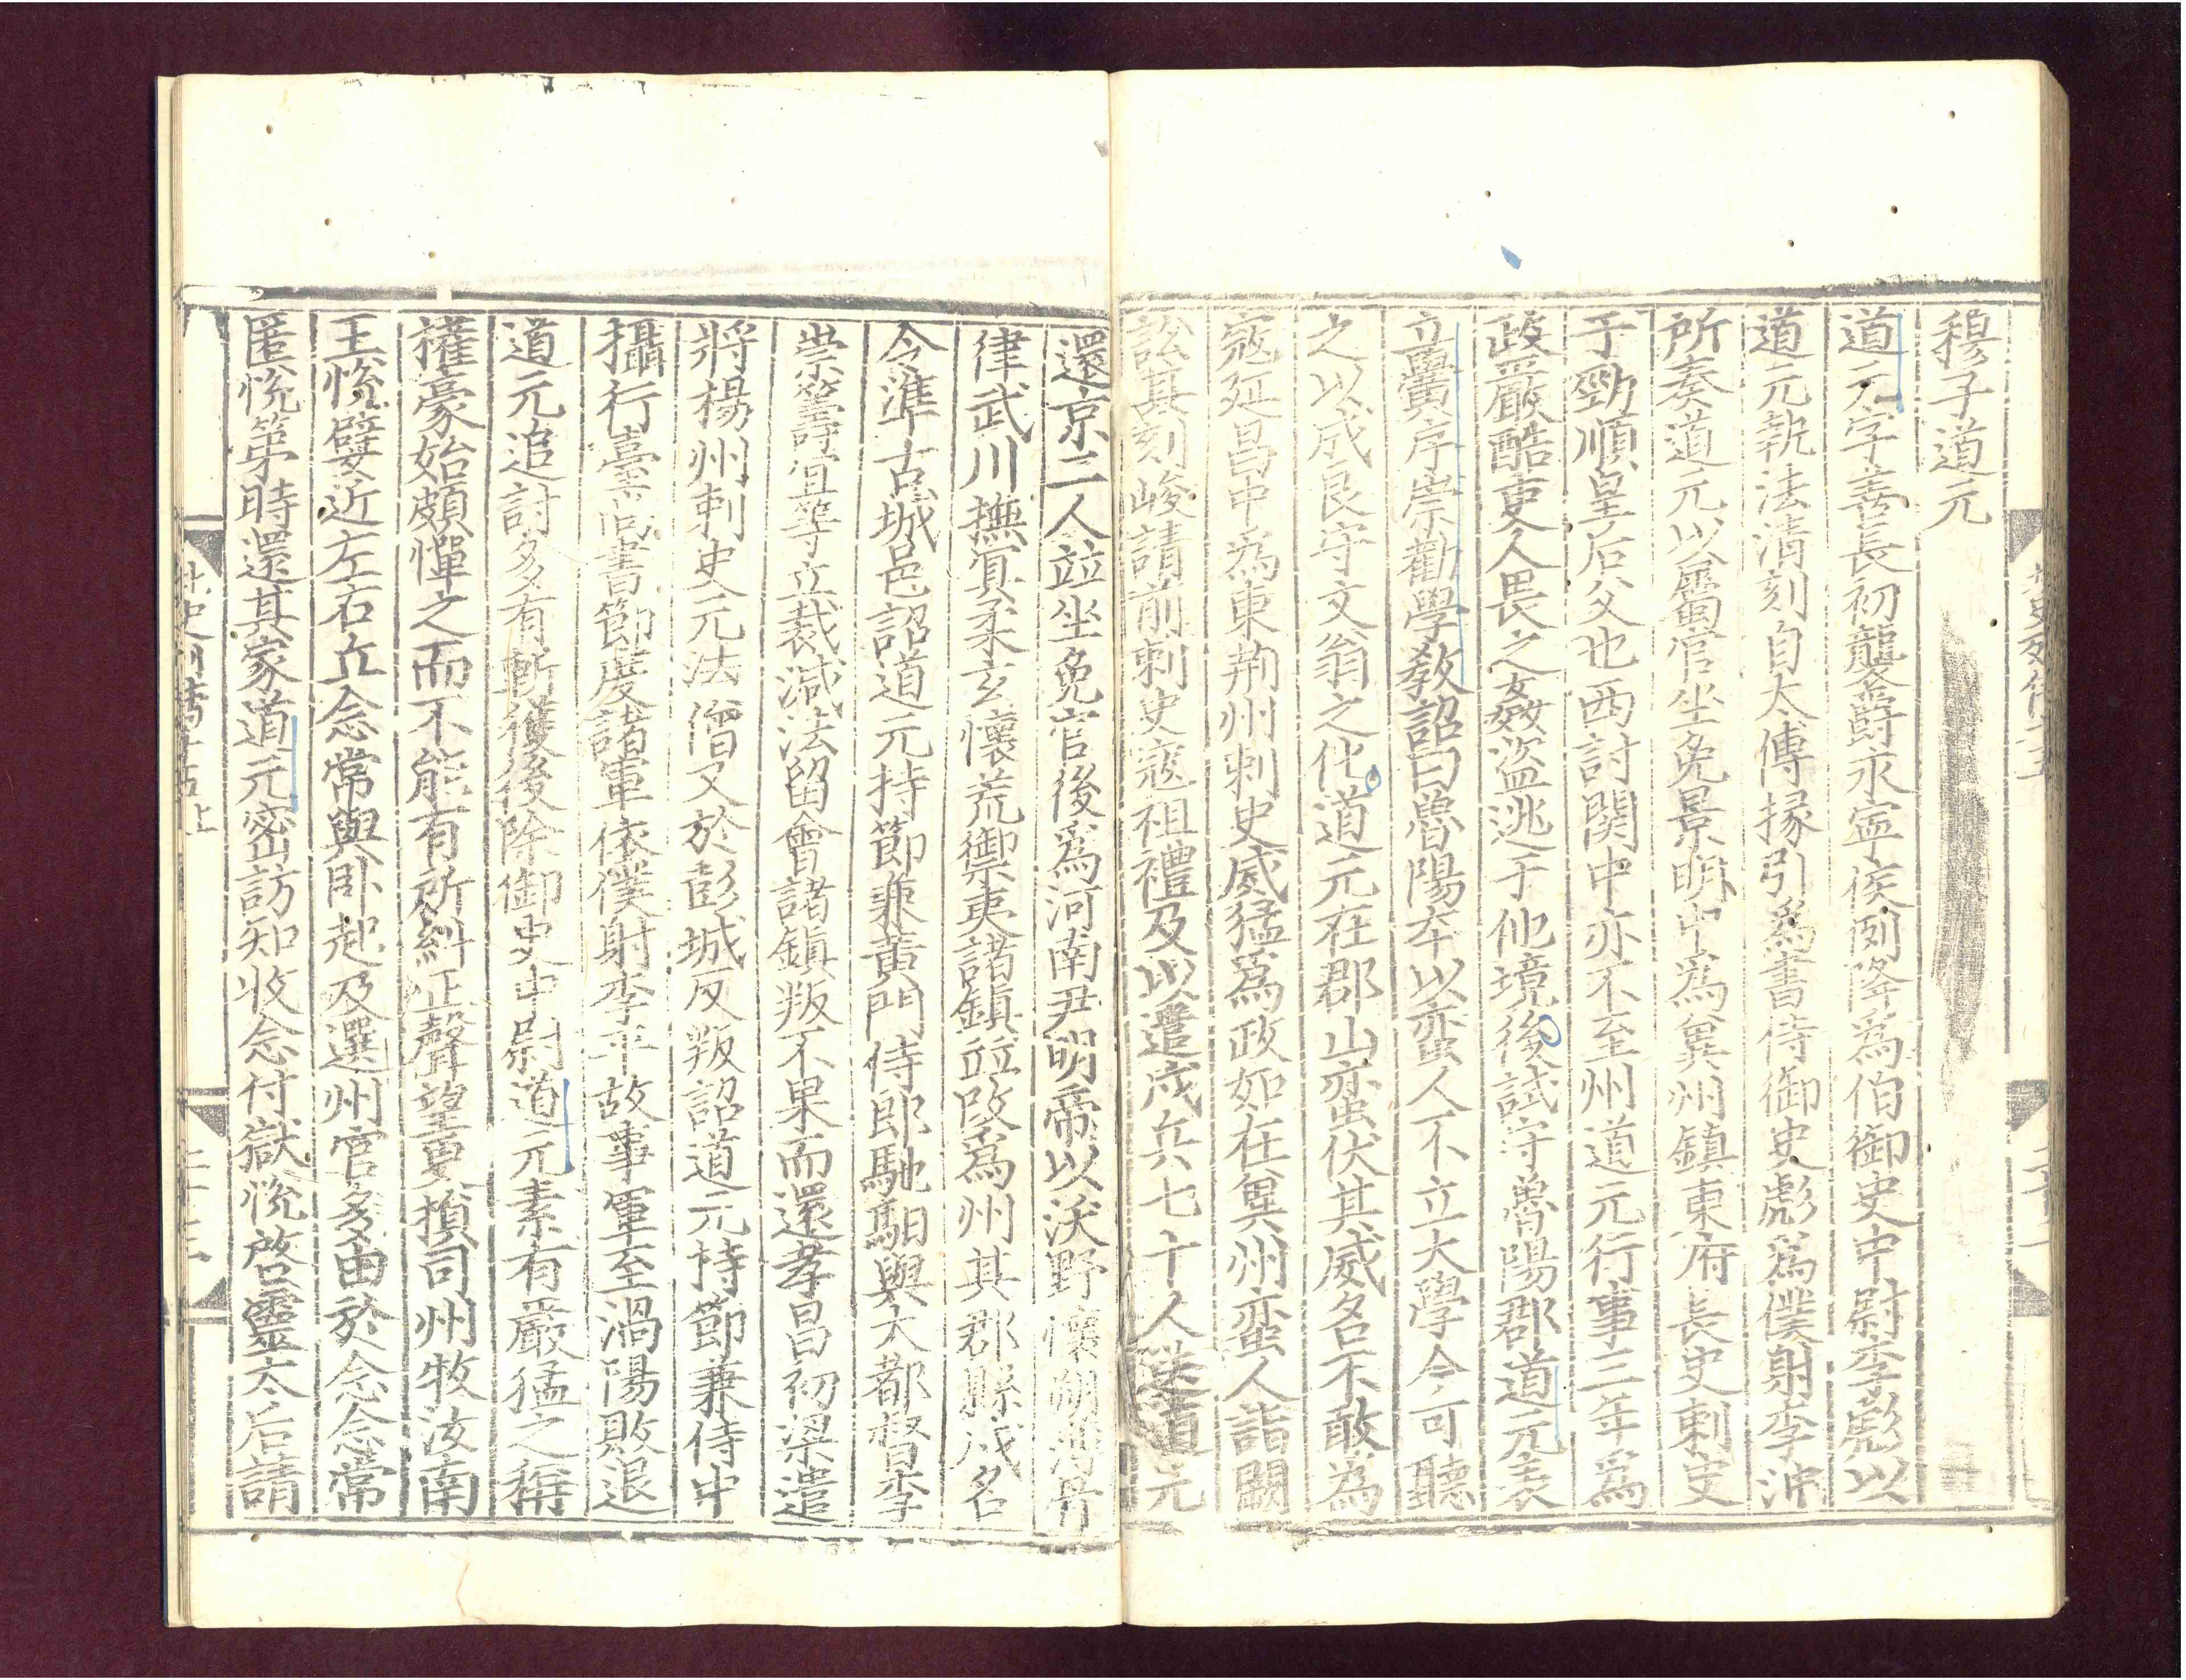 穆子道元
道元字善長初襲爵永寧侯例降爲伯御史中尉李彪以
道元執法清刻自太傅掾引爲書侍御史彪爲僕射李沖
所奏道元以屬官坐免景明中爲兾州鎮東府長史刺史
于勁順皇后父也西討関中亦不至州道元行事三年爲
政嚴酷吏人畏之姦盜逃于他境後試守魯陽郡道元表
立黌序崇勸學敎詔曰魯陽本以蛮人不立大學今可聽
之以成良守文翁之化道元在郡山蛮伏其威名不敢為
寇延昌中爲東荆州刺史威猛爲政如在兾州蛮人詣闕
訟其刻峻請前刺史寇祖禮及以遣戍兵七十人送道元
還京二人竝坐免官後爲河南尹明帝以沃野懷朔薄骨
律武川撫冥柔玄懷荒禦夷諸鎮竝改爲州其郡縣戍名
令準古城邑詔道元持節兼黃門侍郎馳馹與大都督李
崇籌宜等立裁減法留會諸鎮叛不果而還孝昌初梁遣
將楊州刺史元法僧又於彭城反叛詔道元持節兼侍中
攝行臺尚書節度諸軍依僕射李平故事軍至渦陽敗退
道元追討多有斬獲後除御史中尉道元素有嚴猛之稱
權豪始頗憚之而不能有所糾正聲望更損司州牧汝南
王悅嬖近左右丘念常與卧起及選州官多由於念念常
匿悅第時還其家道元密訪知收念付獄悅啓靈太后請